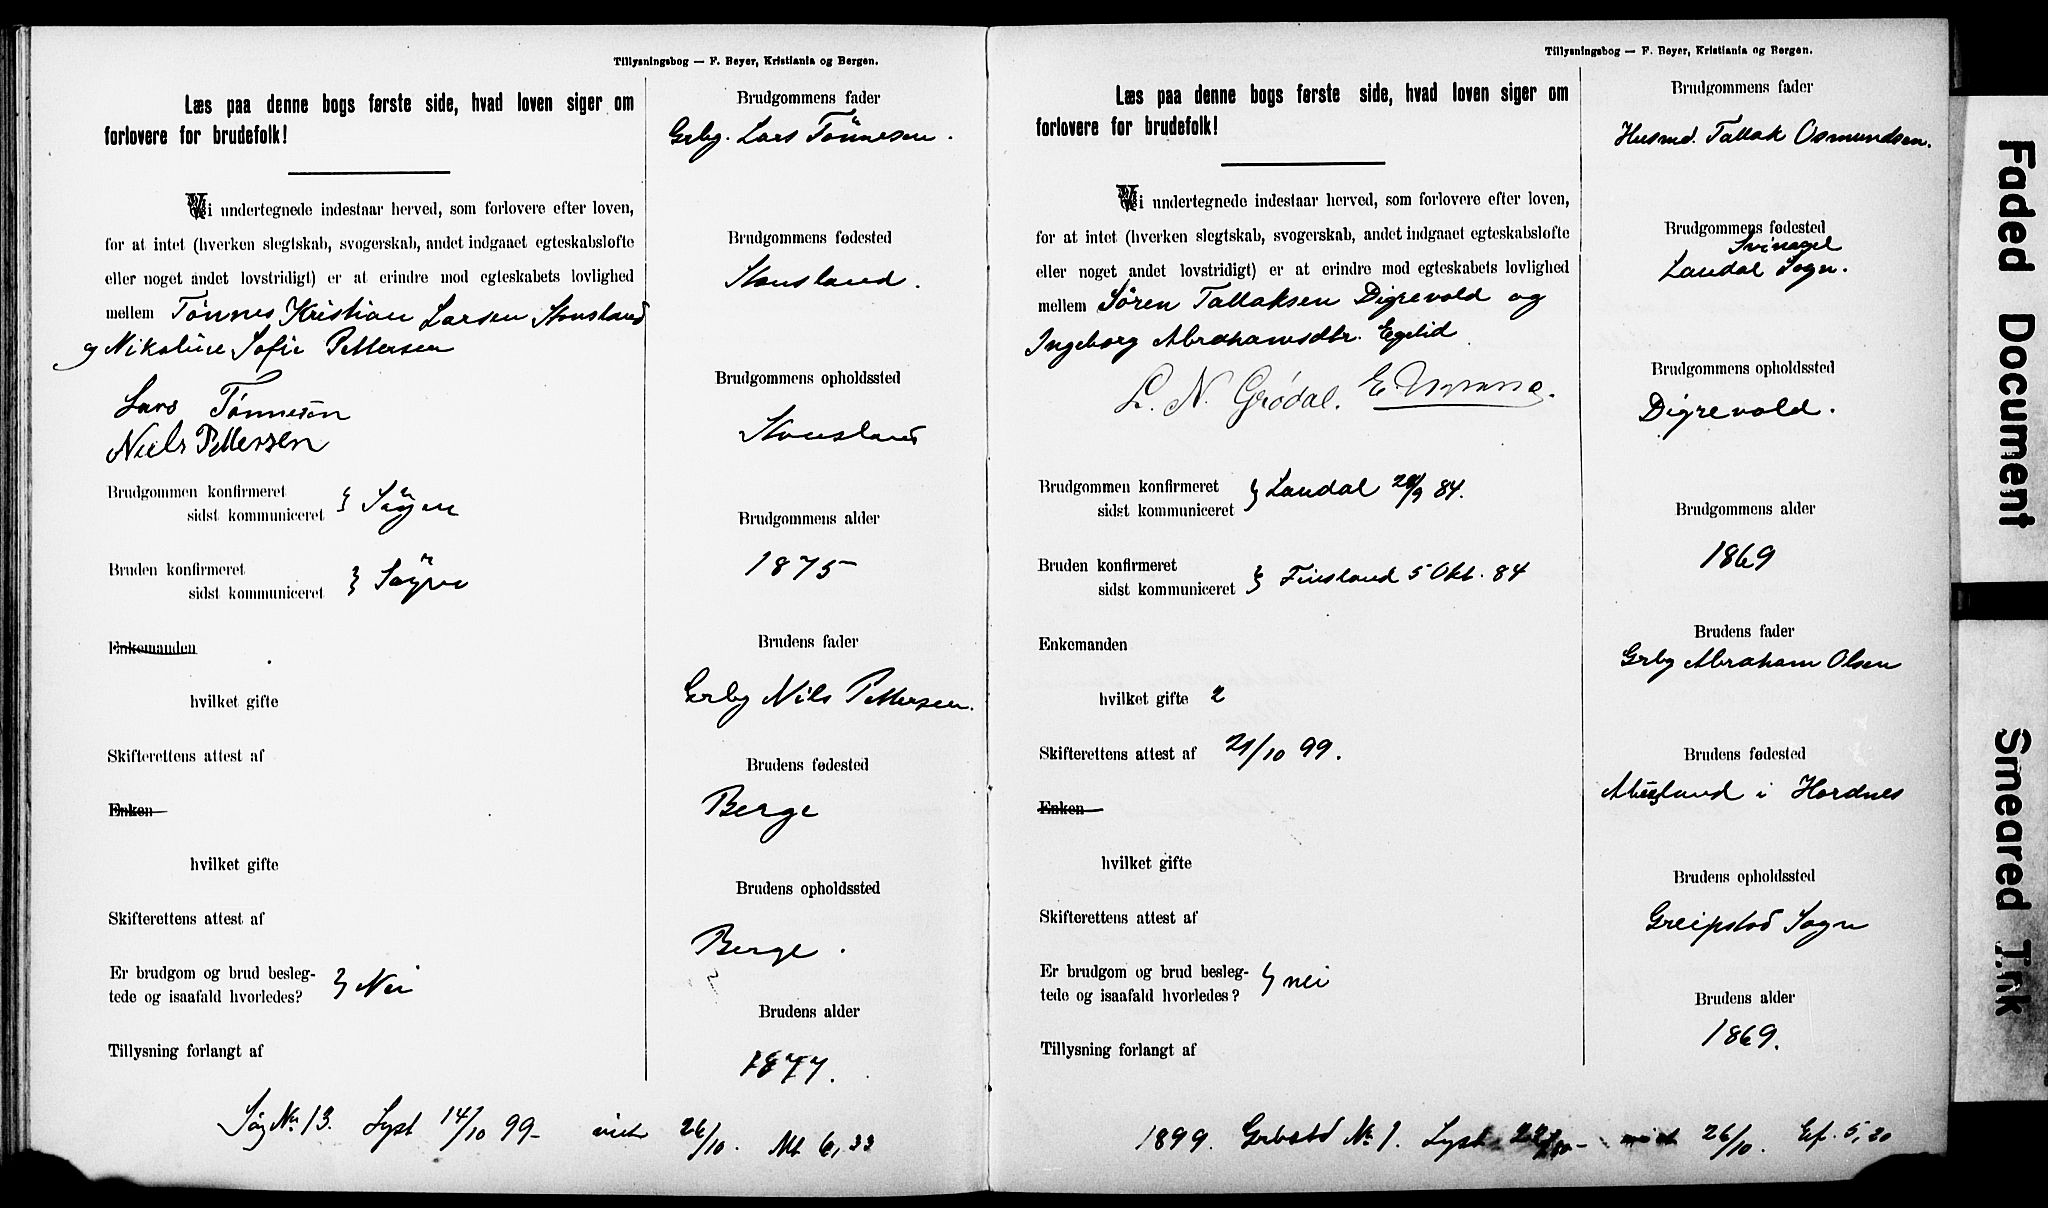 Tillysningsbog — F. Beyer, Kristiania og Bergen.
Læs paa denne bogs første side, hvad loven siger om
forlovere for brudefolk!
Vi undertegnede indestaar herved, som forlovere efter loven,
for at intet (hverken slegtskab, svogerskab, andet indgaaet egteskabsløfte
eller noget andet lovstridigt) er at erindre mod egteskabets lovlighed
mellem Tønnes Kristian Larsen Stousland
og Nikoline Sofie Pettersen
Lars Tønnesen
Niels Pettersen
Brudgommen konfirmeret
sidst kommuniceret } Søgne
Bruden konfirmeret
sidst kommuniceret } Søgne
Enkemanden
hvilket gifte
Skifterettens attest af
Enken
hvilket gifte
Skifterettens attest af
Er brudgom og brud besleg-
tede og isaafald hvorledes? } Nei
Tillysning forlangt af
Brudgommens fader
Grbg. Lars Tönnesen.
Brudgommens fødested
Stousland.
Brudgommens opholdssted
Stousland
Brudgommens alder
1875
Brudens fader
Grbg Nils Pettersen.
Brudens fødested
Berge
Brudens opholdssted
Berge.
Brudens alder
1877.
Søg No 13. Lyst 14/10 99- viet 26/10. Mt 6,33
Tillysningsbog — F. Beyer, Kristiania og Bergen.
Læs paa denne bogs første side, hvad loven siger om
forlovere for brudefolk!
Vi undertegnede indestaar herved, som forlovere efter loven,
for at intet (hverken slegtskab, svogerskab, andet indgaaet egteskabsløfte
eller noget andet lovstridigt) er at erindre mod egteskabets lovlighed
mellem Sören Tallaksen Digrevold og
Ingeborg Abrahamsdtr. Egelid
L. N. Grødal. E
Brudgommen konfirmeret
sidst kommuniceret } Laudal 28/9 84.
Bruden konfirmeret
sidst kommuniceret } Finsland 5 Okt. 84
Enkemanden
hvilket gifte 2
Skifterettens attest af 21/10 99.
Enken
hvilket gifte
Skifterettens attest af
Er brudgom og brud besleg-
tede og isaafald hvorledes? } nei
Tillysning forlangt af
Brudgommens fader
Husmd. Tallak Osmundsen.
Brudgommens fødested
Svinagel
Laudal Sogn.
Brudgommens opholdssted
Digrevold.
Brudgommens alder
1869
Brudens fader
Grbg Abraham Olsen
Brudens fødested
i Hordnes
Brudens opholdssted
Greipstad Sogn
Brudens alder
1869.
1899. Grbstd No 1. Lyst viet 26/10. Ef. 5,20
Faded Document
Smeared Ink